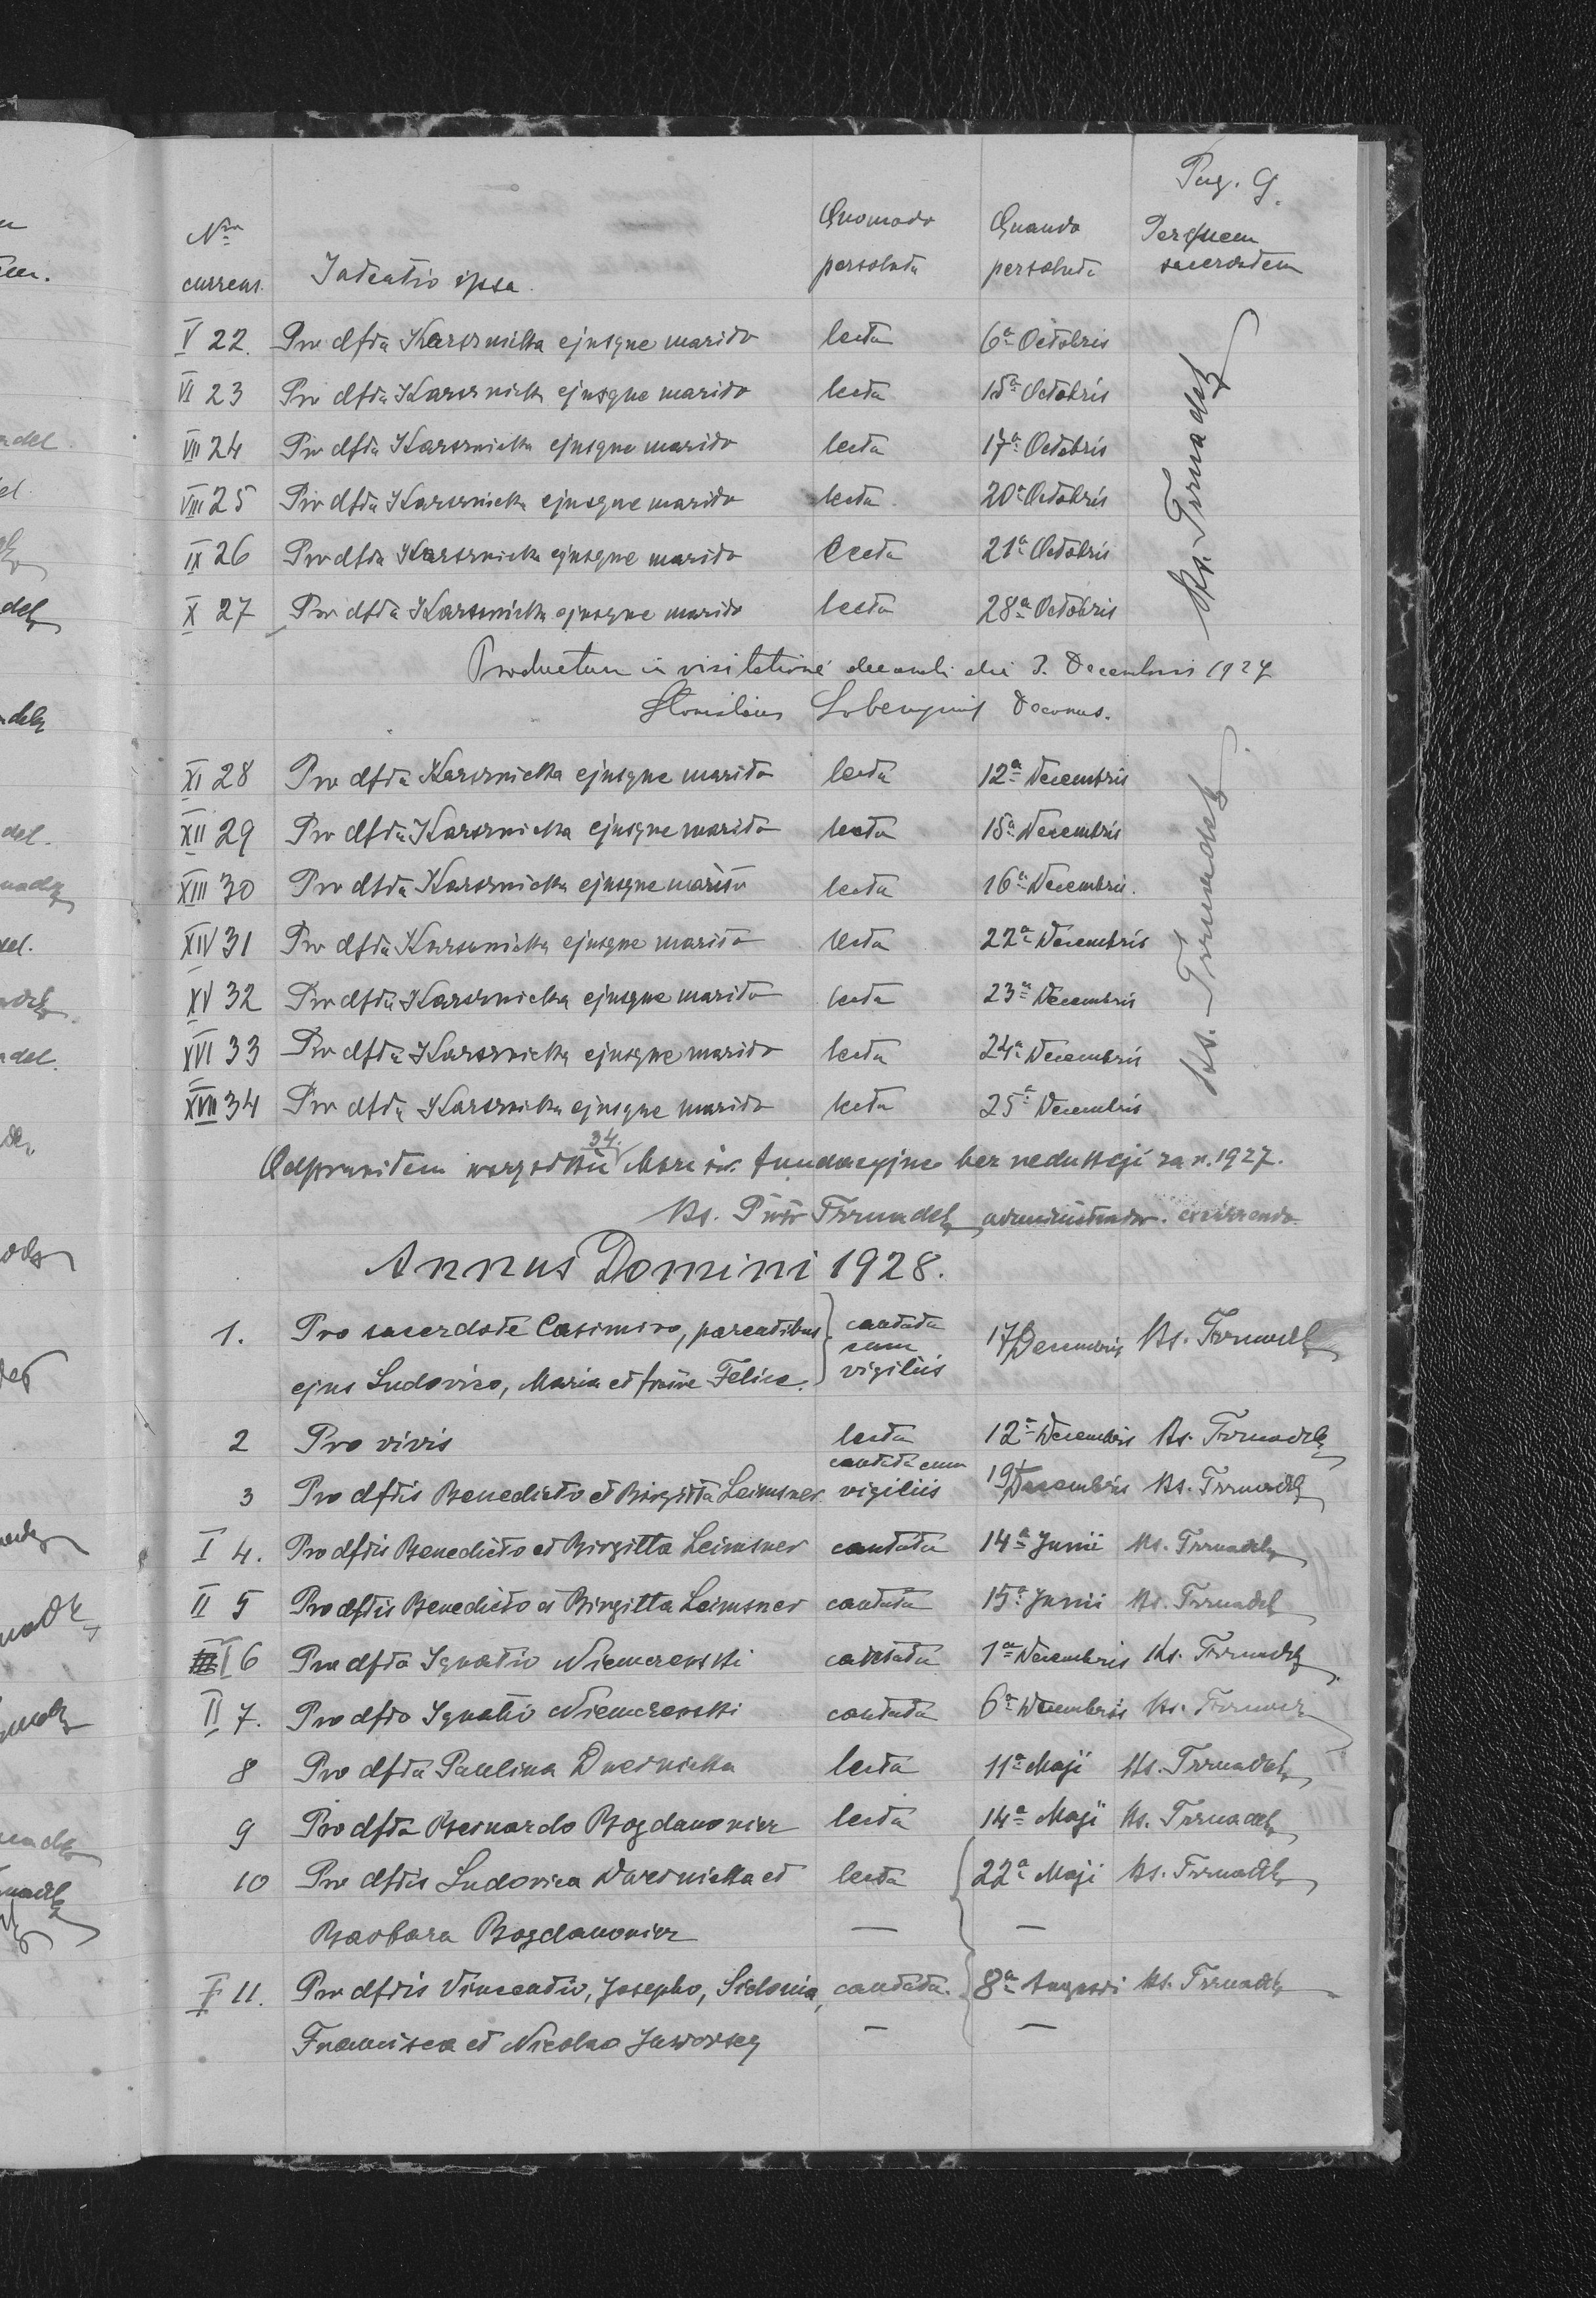 Pag. 9.
Nrū currens. Intentio ipsa. Quomodo persoluta Quando persoluta Per quem sacerdotem
V 22. Pro dfta Karsznicka ejusque marito lecta 6a Octobris
VI 23 Pro dfta Karsznicka ejusque marito lecta 15a Octobris
VII 24 Pro dfta Karsznicka ejusque marito lecta 17a Octobris
VIII 25 Pro dfta Karsznicka ejusque marito lecta 20a Octobris
IX 26 Pro dfta Karsznicka ejusque marito lecta 21a Octobris
X 27 Pro dfta Karsznicka ejusque marito lecta 28a Octobris
Ks.
Productum in visitatione decanali die 3. Decembris 1927
Decanus.
XI 28 Pro dfta Karsznicka ejusque marito lecta 12a Decembris
XII 29 Pro dfta Karsznicka ejusque marito lecta 15a Decembris
XIII 30 Pro dfta Karsznicka ejusque marito lecta 16a Decembris.
XIV 31 Pro dfta Karsznicka ejusque marito lecta 22a Decembris
XV 32 Pro dfta Karsznicka ejusque marito lecta 23a Decembris
XVI 33 Pro dfta Karsznicka ejusque marito lecta 24a Decembris
XVII 34 Pro dfta Karsznicka ejusque marito lecta 25a Decembris
Ks.
Odprawiłem wszystkie 34. Msze św. fundacyjne bez redukcji za r. 1927.
Ks. Piotr administrator.
Annus Domini 1928.
1. Pro sacerdote Casimiro, parentibus cantata cum vigiliis 17 Decembris Ks.
ejus Ludovico, Maria et fratre Felice.
2 Pro vivis lecta 12a Decembris Ks.
3 Pro dftis Benedicto et Birgitta Leimsner cantata cum vigiliis 19 Decembris Ks.
I 4. Pro dftis Benedicto et Birgitta Leimsner cantata 14a Junii Ks.
II 5 Pro dftis Benedicto et Birgitta Leimsner cantata 15a Junii Ks.
I 6 Pro dfto Ignatio Niemczewski cantata 1a Decembris Ks.
II 7. Pro dfto Ignatio Niemczewski cantata 6a Decembris Ks.
8 Pro dfta Paulina lecta 11a Maji Ks.
9 Pro dfto Bernardo Bogdanowicz lecta 14a Maji Ks.
10 Pro dftis Ludovica et lecta 22a Maji Ks.
Barbara Bogdanowicz — —
I 11. Pro dftis Vincentio, Josepho, Sidonia, cantata. 8a Augusti Ks.
Francisca et Nicolao Jaworscy — —